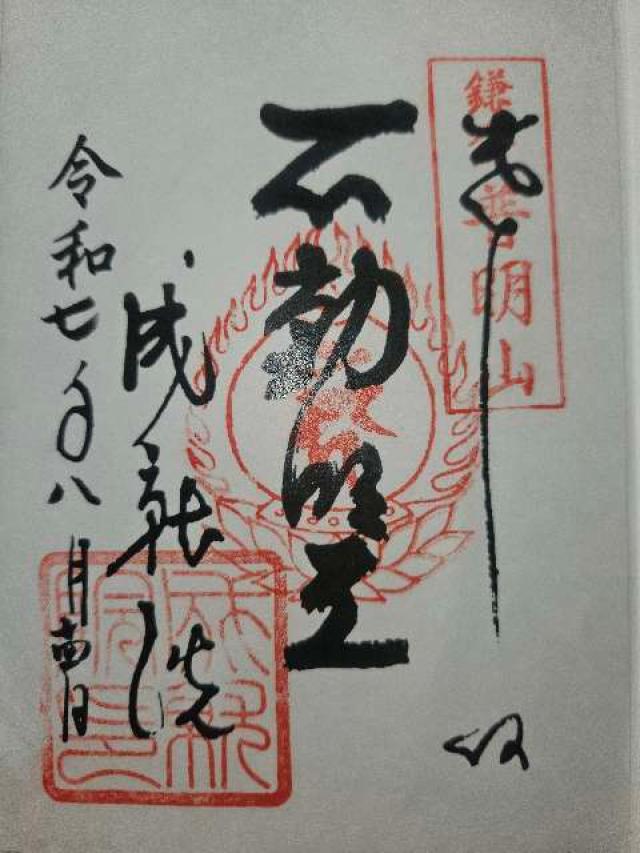 鎌倉普明山
奉拝
不動明王
成就院
令和七年八月十四日